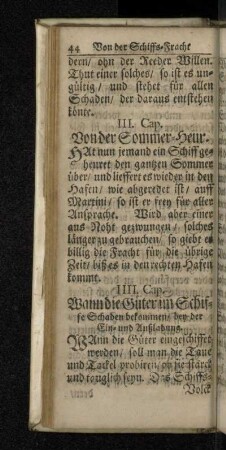 44 Von der Schiffs-Fracht
dern/ ohn der Reeder Willen.
Thut einer solches/ so ist es un-
gültig/ und stehet für allen
Schaden/ der daraus entstehen
könte.
III. Cap.
Von der Sommer-Heur.
HAt nun jemand ein Schiff ge-
heuret den gantzen Sommer
über/ und lieffert es wieder in den
Hafen/ wie abgeredet ist/ auff
Martini/ so ist er frey für aller
Ansprache. Wird aber einer
aus Noht gezwungen/ solches
länger zu gebrauchen/ so giebt es
billig die Fracht für die übrige
Zeit/ biß es in den rechten Hafen
kommt.
IIII. Cap.
Wann die Güter im Schif-
fe Schaden bekommen/ bey der
Ein- und Außladung.
WAnn die Güter eingeschiffet
werden/ soll man die Taue
und Tackel probiren/ ob sie starck
und tauglich seyn. Das Schiffs-
Volck